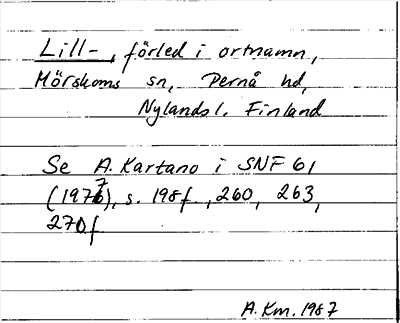 Lill-, förled i ortnamn,
Mörskoms sn, Pernå hd,
Nylands l. Finland
Se A. Kartano i SNF 61
(1977), s. 198f., 260, 263,
270f
A.Km. 1987